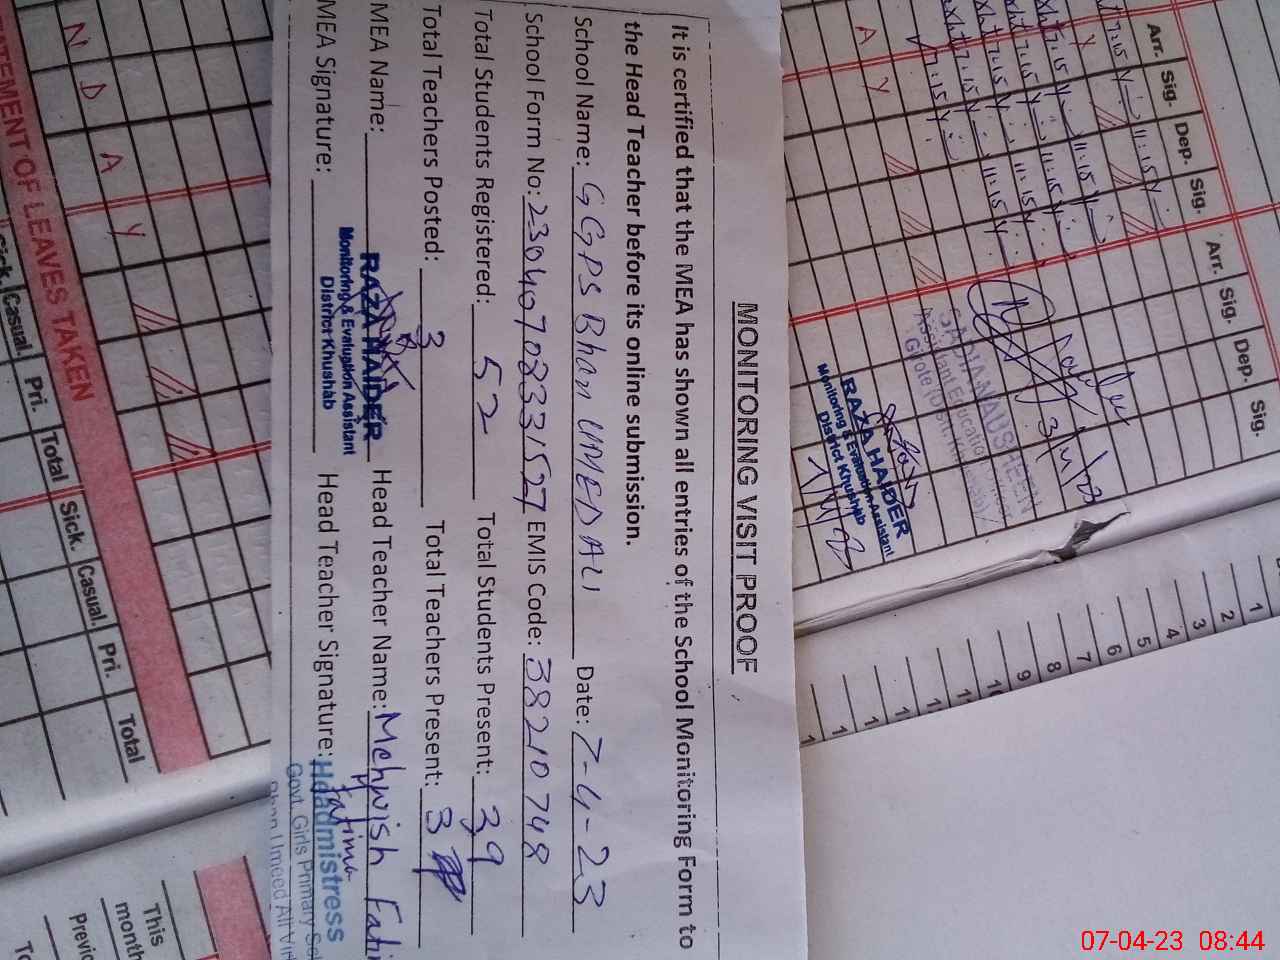 MONITORING VISIT PROOF
It is certified that the MEA has shown all entries of the School Monitoring Form to
the Head Teacher before its online submission.
School Name: GGPS Bhan UMED ALI Date: 7-4-23
School Form No: 23040708331527 EMIS Code: 38210748
Total Students Registered: 52 Total Students Present: 39
Total Teachers Posted: 3 Total Teachers Present: 3
MEA Name: RAZA HAIDER Head Teacher Name: Mehwish Fati
Monitoring & Evaluation Assistant
District Khushab
MEA Signature: Head Teacher Signature: Fatima
Headmistress
Govt. Girls Primary Sc
Bhan Umeed Ali
Arr. Sig. Dep. Sig. Arr. Sig. Dep. Sig.
7:15 11:15
7:15 11:15
7:15 11:15
7:15 11:15
7:15
A Y
SADIA NAUSHEEN
Assistant Education
RAZA HAIDER
Monitoring & Evaluation Assistant
District Khushab
1
2
3
4
5
6
7
8
9
N D A Y
TATEMENT OF LEAVES TAKEN
Sick. Casual. Pri. Total Sick. Casual. Pri. Total
This
month
Previo
07-04-23 08:44